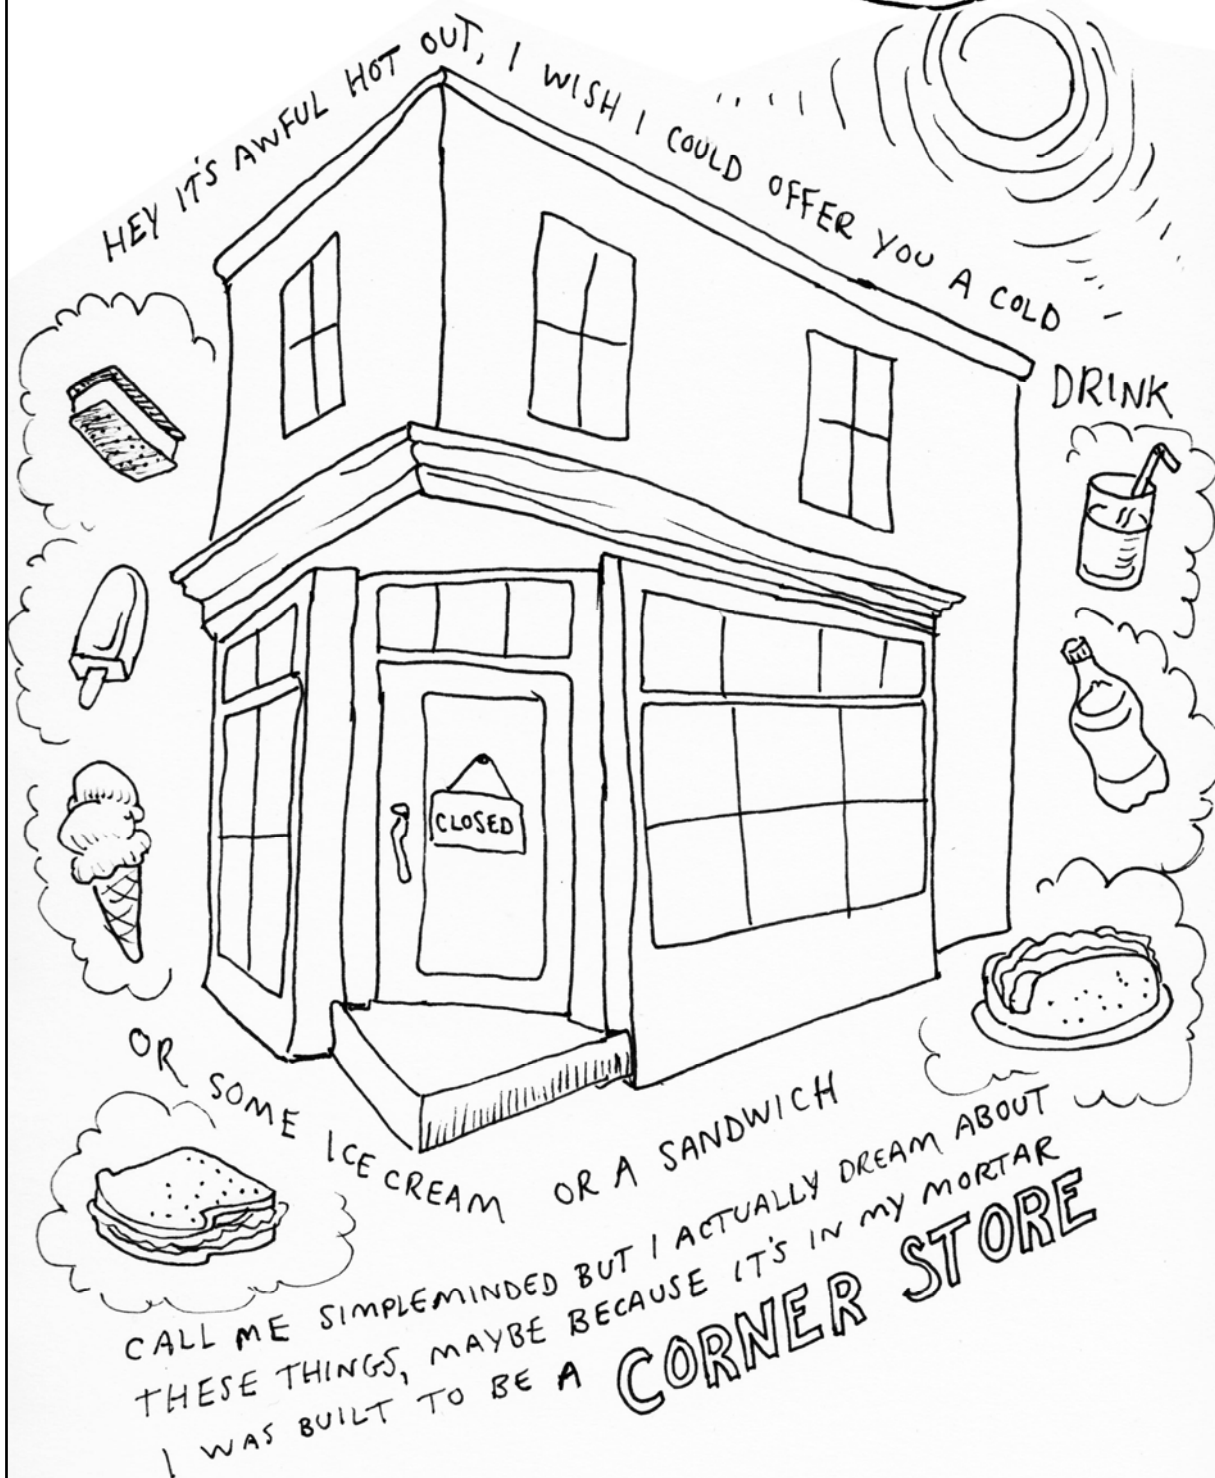 HEY IT'S AWFUL HOT OUT, I WISH I COULD OFFER YOU A COLD
DRINK
CLOSED
OR SOME ICE CREAM OR A SANDWICH
CALL ME SIMPLEMINDED BUT I ACTUALLY DREAM ABOUT
THESE THINGS, MAYBE BECAUSE IT'S IN MY MORTAR
I WAS BUILT TO BE A CORNER STORE